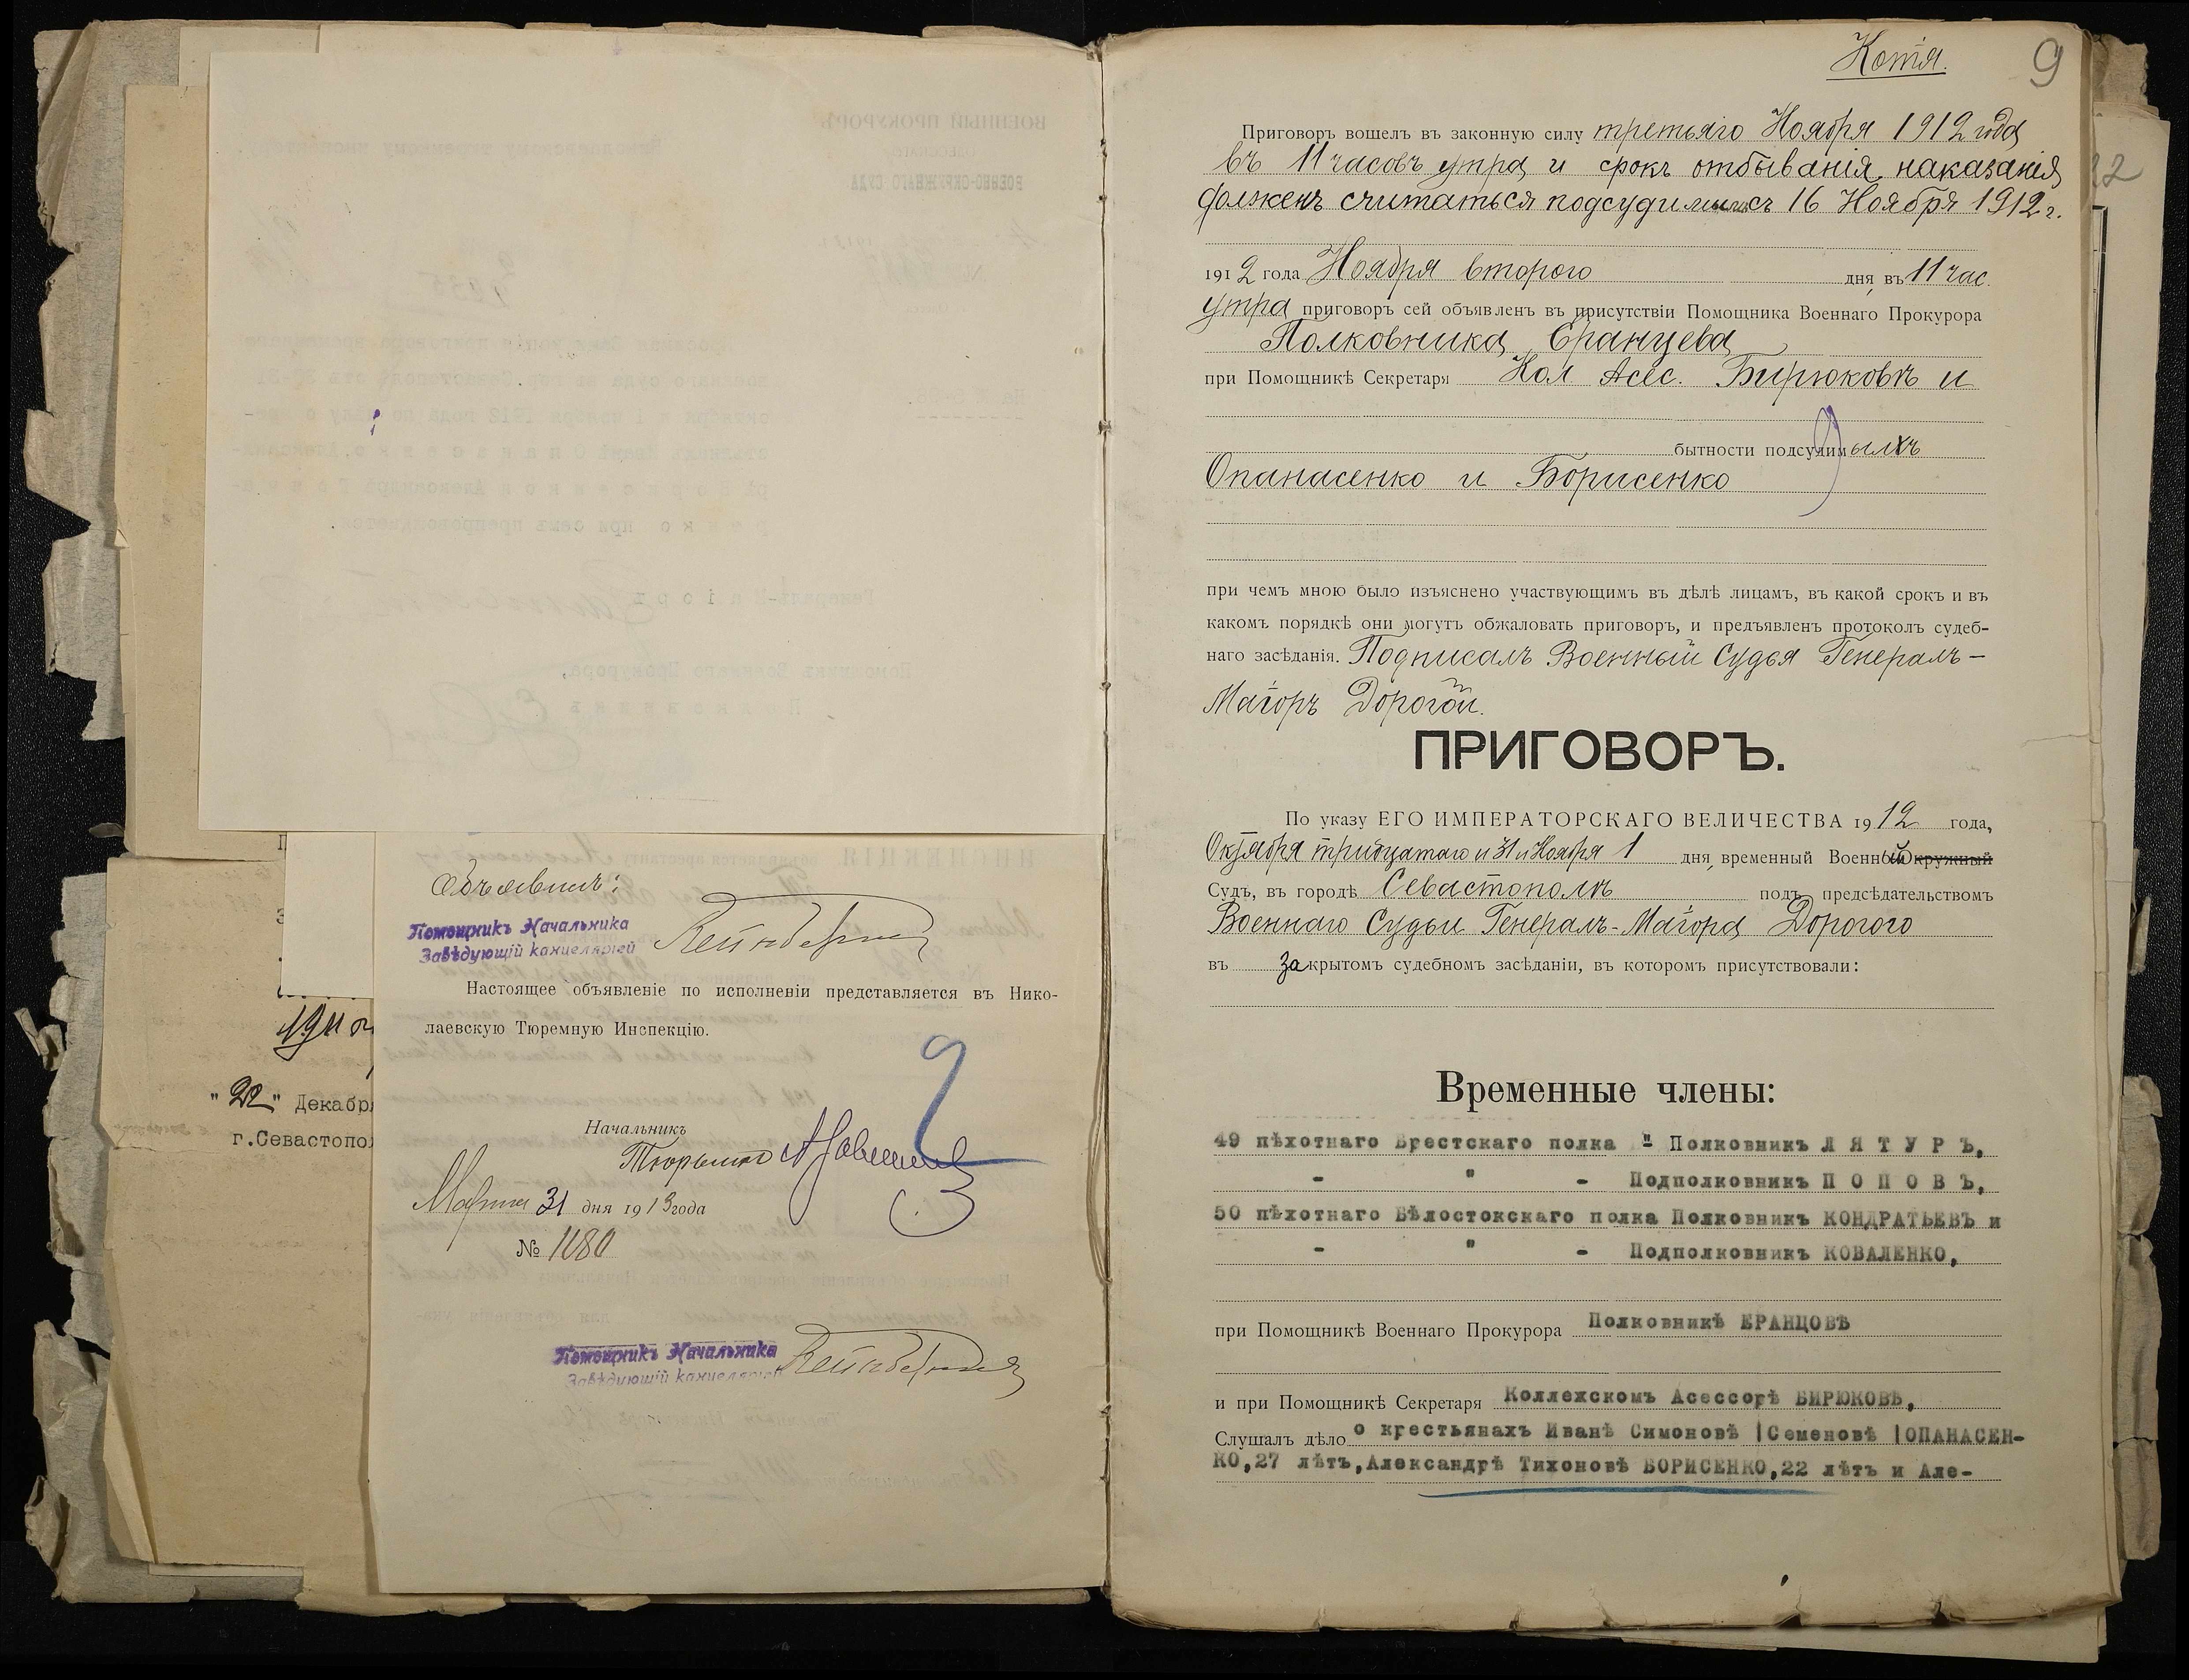 Объявилъ:
Помощникъ Начальника
Завѣдующій канцеляріей
Настоящее объявленіе по исполненіи представляется въ Нико-
лаевскую Тюремную Инспекцію.
1911
"22" Декабр
г.Севастопо
Начальникъ
Тюрьмы
Марта 31 дня 1913 года
№ 1180
Помощникъ Начальника
Завѣдующій канцеляріей
Копія.
9
22
Приговоръ вошелъ въ законную силу третьяго Ноября 1912 года
въ 11 часовъ утра и срокъ отбыванія наказанія
долженъ считаться подсудимымъ съ 16 Ноября 1912 г.
1912 года Ноября второго дня, въ 11 час.
утра приговоръ сей объявленъ въ присутствіи Помощника Военнаго Прокурора
Полковника Еранцева
при Помощникѣ Секретаря Кол. Асес. Бирюковѣ и
бытности подсудимыхъ
Опанасенко и Борисенко
при чемъ мною было изъяснено участвующимъ въ дѣлѣ лицамъ, въ какой срокъ и въ
какомъ порядкѣ они могутъ обжаловать приговоръ, и предъявленъ протоколъ судеб-
наго засѣданія. Подписалъ Военный Судья Генералъ-
Маіоръ Дорогой.
ПРИГОВОРЪ.
По указу ЕГО ИМПЕРАТОРСКАГО ВЕЛИЧЕСТВА 1912 года,
Октября тридцатаго и 31 и Ноября 1 дня, временный Военный Окружный
Судъ, въ городѣ Севастополѣ подъ предсѣдательствомъ
Военнаго Судьи Генералъ-Маіора Дорогого
въ закрытомъ судебномъ засѣданіи, въ которомъ присутствовали:
Временные члены:
49 пѣхотнаго Брестскаго полка " Полковникъ ЛЯТУРЪ,
- " - Подполковникъ ПОПОВЪ,
50 пѣхотнаго Бѣлостокскаго полка Полковникъ КОНДРАТЬЕВЪ и
- " - Подполковникъ КОВАЛЕНКО,
при Помощникѣ Военнаго Прокурора Полковникѣ ЕРАНЦОВѢ
и при Помощникѣ Секретаря Коллежскомъ Асессорѣ БИРЮКОВѢ,
Слушалъ дѣло о крестьянахъ Иванѣ Симоновѣ |Семеновѣ |ОПАНАСЕН-
КО,27 лѣтъ,Александрѣ Тихоновѣ БОРИСЕНКО,22 лѣтъ и Але-